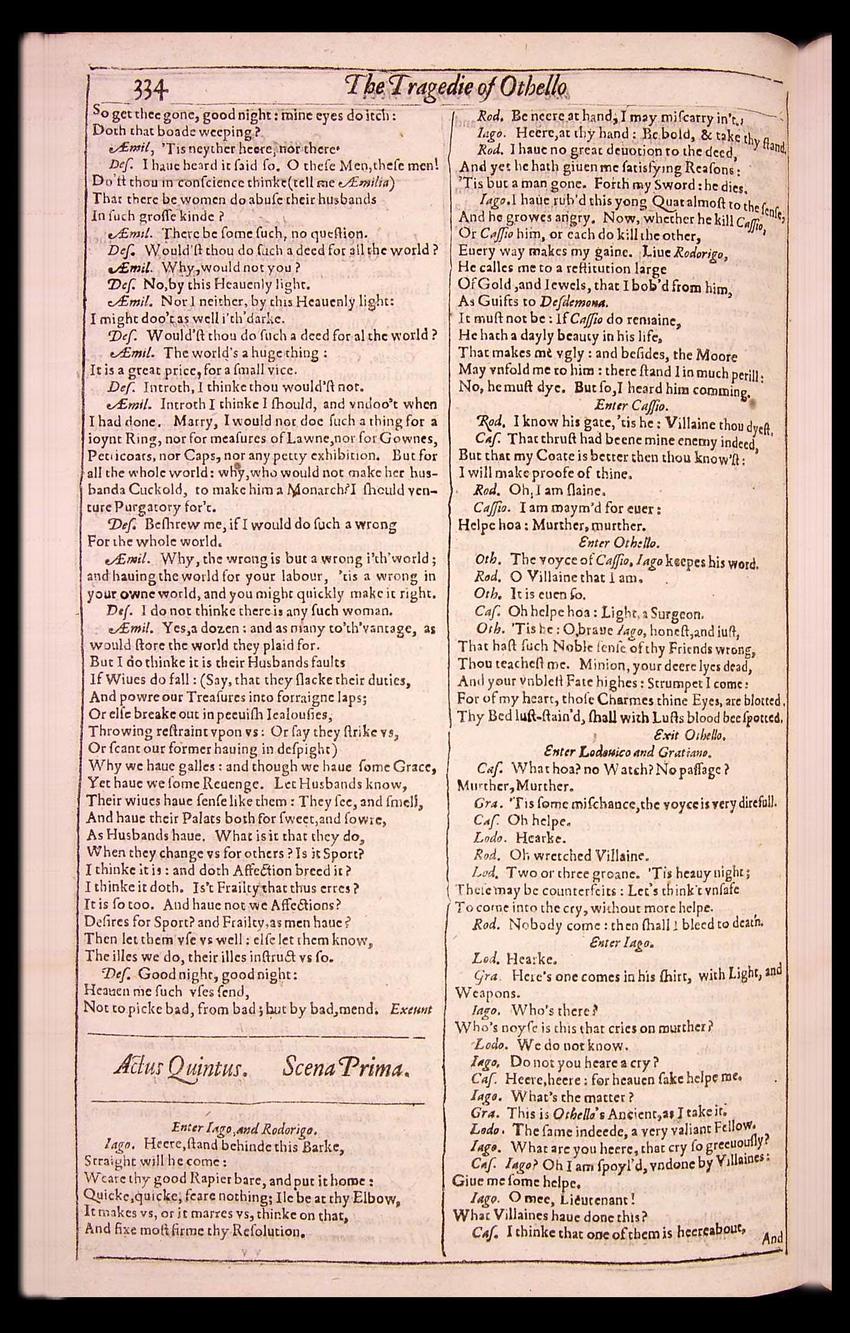 334
The Tragedie of Othello
So get thee gone, good night: mine eyes do itch:
Doth that boade weeping?
Æmil, 'Tis neyther heere, nor there.
Deſ. I haue heard it ſaid ſo. O theſe Men, theſe men!
Do'ſt thou in conſcience thinke (tell me Æmilia)
That there be women do abuſe their husbands
In ſuch groſſe kinde?
Æmil. There be ſome ſuch, no queſtion.
Deſ. Would'ſt thou do ſuch a deed for all the world?
Æmil. Why, would not you?
Deſ. No, by this Heauenly light.
Æmil. Nor I neither, by this Heauenly light:
I might doo't as well i'th'darke.
Deſ. Would'ſt thou do ſuch a deed for al the world?
Æmil. The world's a huge thing:
It is a great price, for a ſmall vice.
Deſ. Introth, I thinke thou would'ſt not.
Æmil. Introth I thinke I ſhould, and vndoo't when
I had done. Marry, I would not doe ſuch a thing for a
ioynt Ring, nor for meaſures of Lawne, nor for Gownes,
Petticoats, nor Caps, nor any petty exhibition. But for
all the whole world: why, who would not make her hus-
band a Cuckold, to make him a Monarch? I ſhould ven-
ture Purgatory for't.
Deſ. Beſhrew me, if I would do ſuch a wrong
For the whole world.
Æmil. Why, the wrong is but a wrong i'th'world;
and hauing the world for your labour, 'tis a wrong in
your owne world, and you might quickly make it right.
Deſ. I do not thinke there is any ſuch woman.
Æmil. Yes, a dozen: and as many to'th'vantage, as
would ſtore the world they plaid for.
But I do thinke it is their Husbands faults
If Wiues do fall: (Say, that they ſlacke their duties,
And powre our Treaſures into forraigne laps;
Or elſe breake out in peeuiſh Iealouſies,
Throwing reſtraint vpon vs: Or ſay they ſtrike vs,
Or ſcant our former hauing in deſpight)
Why we haue galles: and though we haue ſome Grace,
Yet haue we ſome Reuenge. Let Husbands know,
Their wiues haue ſenſe like them: They ſee, and ſmell,
And haue their Palats both for ſweet, and ſowre,
As Husbands haue. What is it that they do,
When they change vs for others? Is it Sport?
I thinke it is: and doth Affection breed it?
I thinke it doth. Is't Frailty that thus erres?
It is ſo too. And haue not we Affections?
Deſires for Sport? and Frailty, as men haue?
Then let them vſe vs well: elſe let them know,
The illes we do, their illes inſtruct vs ſo.
Deſ. Good night, good night:
Heauen me ſuch vſes ſend,
Not to picke bad, from bad; but by bad, mend. Exeunt
Actus Quintus. Scena Prima.
Enter Iago, and Rodorigo.
Iago. Heere, ſtand behinde this Barke,
Straight will he come:
Weare thy good Rapier bare, and put it home:
Quicke, quicke, feare nothing; Ile be at thy Elbow,
It makes vs, or it marres vs, thinke on that,
And fixe moſt firme thy Reſolution.
Rod. Be neere at hand, I may miſcarry in't.
Iago. Heere, at thy hand: Be bold, & take thy ſtand.
Rod. I haue no great deuotion to the deed,
And yet he hath giuen me ſatisfying Reaſons:
'Tis but a man gone. Forth my Sword: he dies.
Iago. I haue rub'd this yong Quat almoſt to the ſenſe,
And he growes angry. Now, whether he kill Caſſio,
Or Caſſio him, or each do kill the other,
Euery way makes my gaine. Liue Rodorigo,
He calles me to a reſtitution large
Of Gold, and Iewels, that I bob'd from him,
As Guifts to Deſdemona.
It muſt not be: If Caſſio do remaine,
He hath a dayly beauty in his life,
That makes me vgly: and beſides, the Moore
May vnfold me to him: there ſtand I in much perill:
No, he muſt dye. But ſo, I heard him comming.
Enter Caſſio.
Rod. I know his gate, 'tis he: Villaine thou dyeſt.
Caſ. That thruſt had beene mine enemy indeed,
But that my Coate is better then thou know'ſt:
I will make proofe of thine.
Rod. Oh, I am ſlaine.
Caſſio. I am maym'd for euer:
Helpe hoa: Murther, murther.
Enter Othello.
Oth. The voyce of Caſſio, Iago keepes his word.
Rod. O Villaine that I am.
Oth. It is euen ſo.
Caſ. Oh helpe hoa: Light, a Surgeon.
Oth. 'Tis he: O, braue Iago, honeſt, and iuſt,
That haſt ſuch Noble ſenſe of thy Friends wrong,
Thou teacheſt me. Minion, your deere lyes dead,
And your vnbleſt Fate highes: Strumpet I come:
For of my heart, thoſe Charmes thine Eyes, are blotted.
Thy Bed luſt-ſtain'd, ſhall with Luſts blood bee ſpotted.
Exit Othello.
Enter Lodouico and Gratiano.
Caſ. What hoa? no Watch? No paſſage?
Murther, Murther.
Gra. 'Tis ſome miſchance, the voyce is very direfull.
Caſ. Oh helpe.
Lodo. Hearke.
Rod. Oh wretched Villaine.
Lod. Two or three groane. 'Tis heauy night;
Theſe may be counterfeits: Let's think't vnſafe
To come into the cry, without more helpe.
Rod. Nobody come: then ſhall I bleed to death.
Enter Iago.
Lod. Hearke.
Gra. Here's one comes in his ſhirt, with Light, and
Weapons.
Iago. Who's there?
Who's noyſe is this that cries on murther?
Lodo. We do not know.
Iago. Do not you heare a cry?
Caſ. Heere, heere: for heauen ſake helpe me.
Iago. What's the matter?
Gra. This is Othello's Ancient, as I take it.
Lodo. The ſame indeede, a very valiant Fellow.
Iago. What are you heere, that cry ſo greeuouſly?
Caſ. Iago? Oh I am ſpoyl'd, vndone by Villaines:
Giue me ſome helpe.
Iago. O mee, Lieutenant!
What Villaines haue done this?
Caſ. I thinke that one of them is heereabout,
And